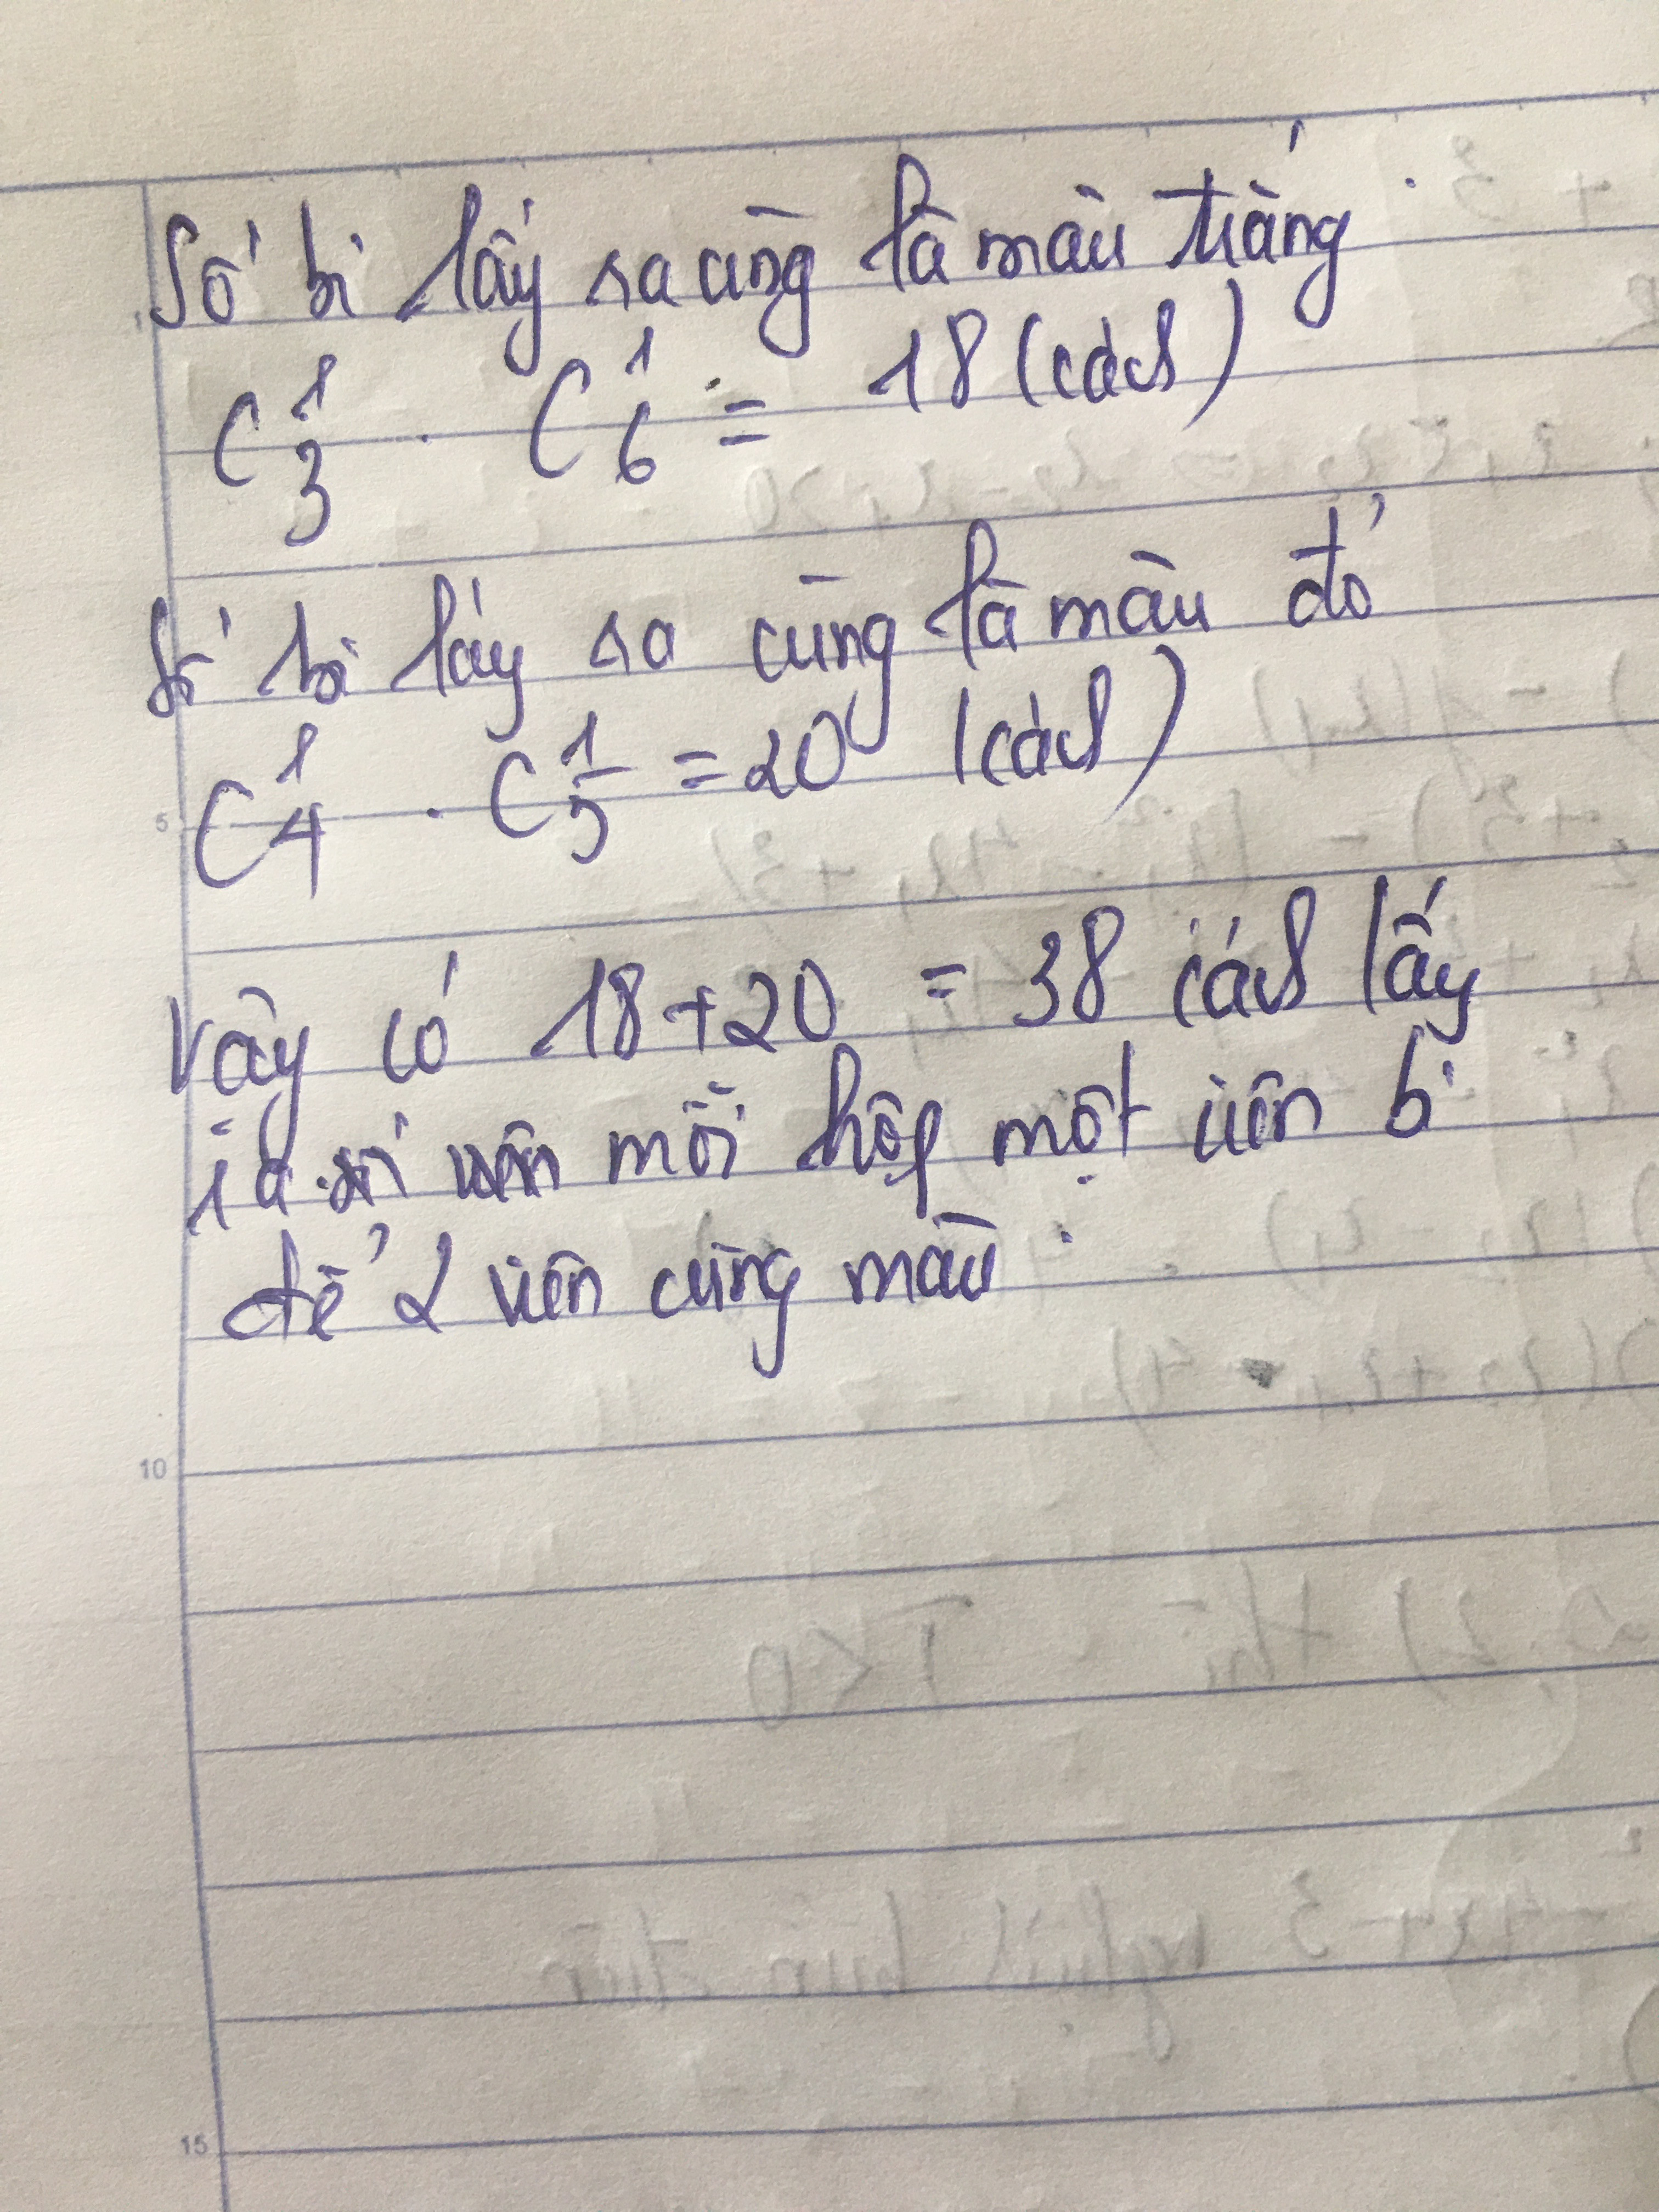 Số bi lấy ra cùng là màu trắng
C 1 3 . C 1 6 = 18 (cách)
Số bi lấy ra cùng là màu đỏ
C 1 4 . C 1 5 = 20 (cách)
5
Vậy có 18 + 20 = 38 cách lấy
mỗi hộp một viên bi
để 2 viên cùng màu.
10
15